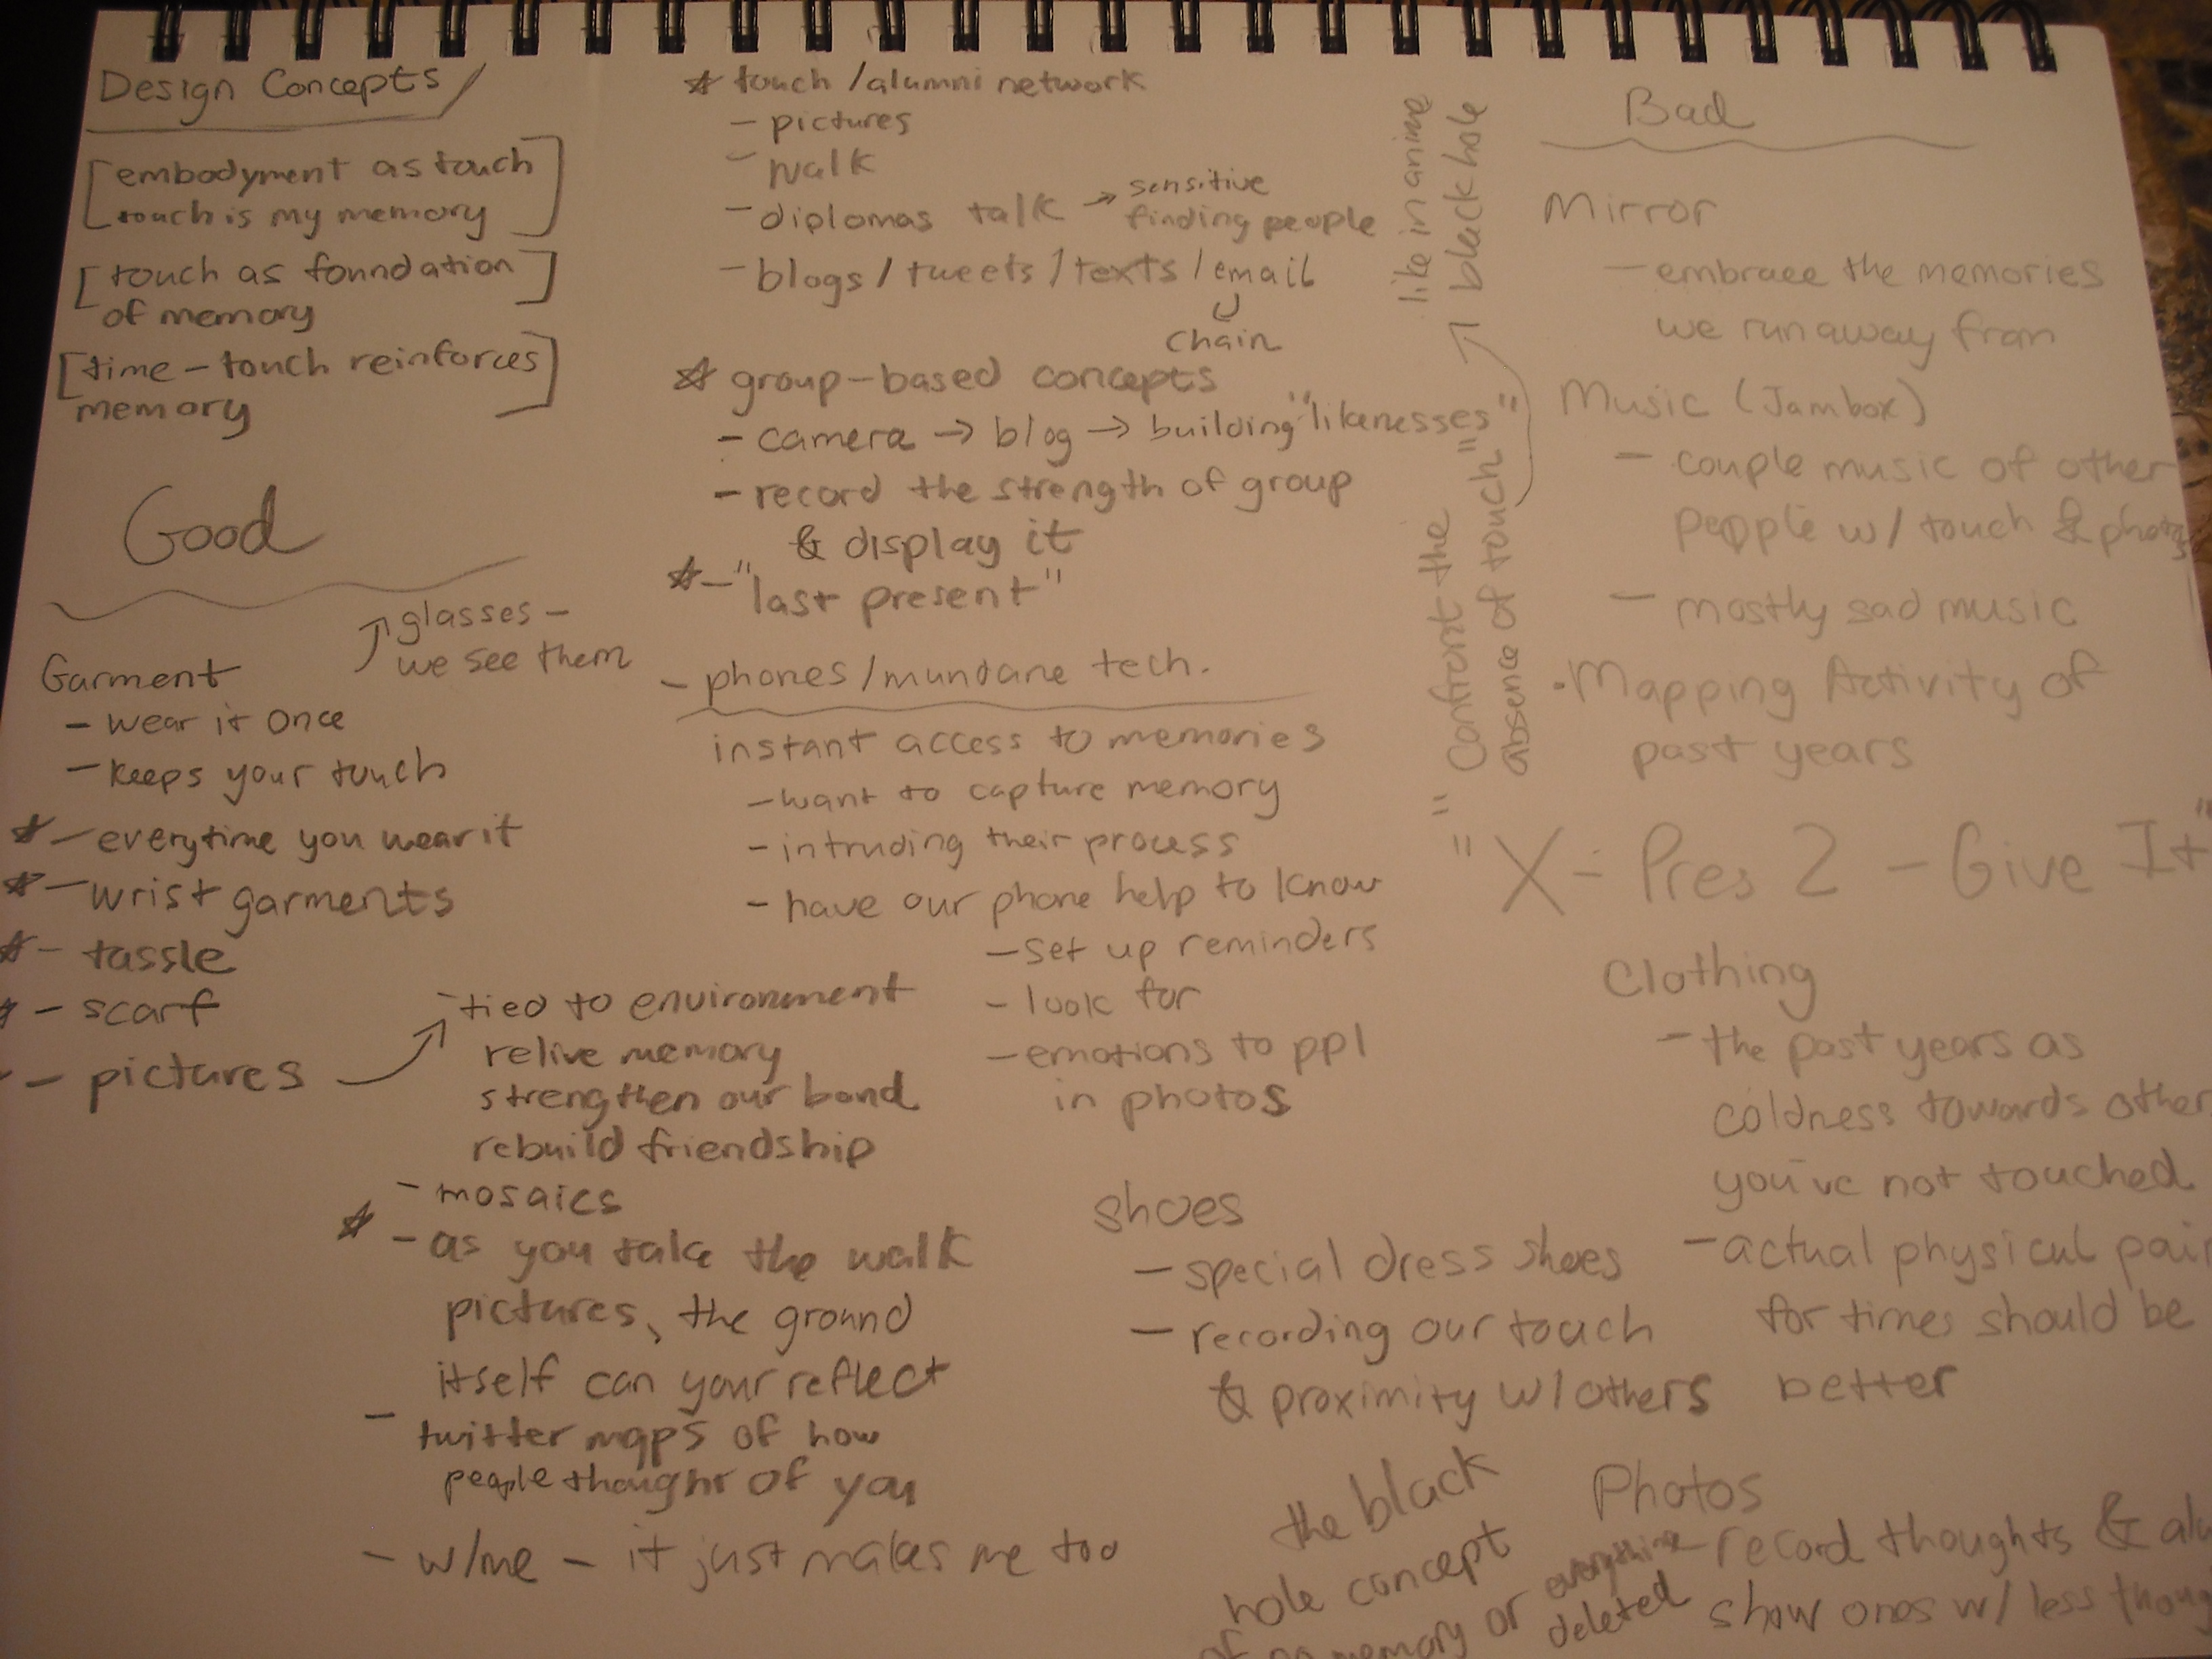 Design Concepts/
[embodyment as touch
touch is my memory]
[touch as foundation]
of memory
[time - touch reinforces]
memory
Good
glasses -
we see them
Garment
- wear it once
- keeps your touch
☆ - everytime you wear it
☆ - wrist garments
☆ - tassle
☆ - scarf
- pictures
- tied to environment
relive memory
strengthen our bond
rebuild friendship
- mosaics
☆ - as you take the walk
pictures, the ground
itself can your reflect
- twitter maps of how
people thought of you
- w/me - it just makes me too
☆ touch /alumni network
- pictures
- walk
- diplomas talk → sensitive
finding people
- blogs / tweets / texts / email
chain
☆ group-based concepts
- camera → blog → building "likenesses"
- record the strength of group
& display it
☆ - "last present"
- phones/mundane tech.
instant access to memories
- want to capture memory
- intruding their process
- have our phone help to know
- set up reminders
- look for
- emotions to ppl
in photos
shoes
- special dress shoes
- recording our touch
& proximity w/others
the black
hole concept
of no memory or everything
deleted
like in anime
black hole
"Confront the
absence of touch"
Bad
Mirror
- embrace the memories
we run away from
Music (Jambox)
- couple music of other
people w/ touch & photos
- mostly sad music
· Mapping Activity of
past years
"X-Pres 2 - Give It"
Clothing
- the past years as
coldness towards other
you've not touched
- actual physical pain
for times should be
better
Photos
- record thoughts &
show ones w/ less